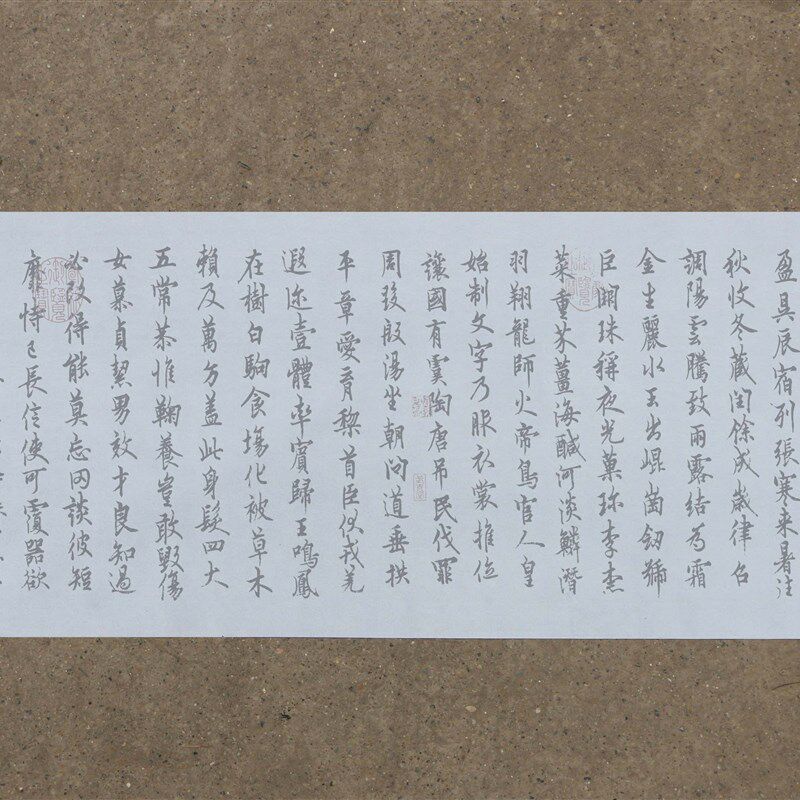 盈昃辰宿列張寒来暑往
秋收冬藏閏餘成歲律吕
調陽雲騰致雨露結為霜
金生麗水玉出崐崗劒號
巨闕珠稱夜光菓珍李柰
菜重芥薑海鹹河淡鱗潛
羽翔龍師火帝鳥官人皇
始制文字乃服衣裳推位
讓國有虞陶唐吊民伐罪
周發殷湯坐朝問道垂拱
平章愛育黎首臣伏戎羌
遐迩壹體率賓歸王鳴鳳
在樹白駒食場化被草木
賴及萬方蓋此身髮四大
五常恭惟鞠養豈敢毀傷
女慕貞絜男效才良知過
必改得能莫忘罔談彼短
靡恃己長信使可覆器欲